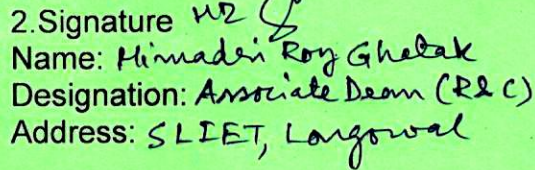 2.Signature
Name: Himadri Roy Ghatak
Designation: Associate Dean (R&C)
Address: SLIET, Longowal